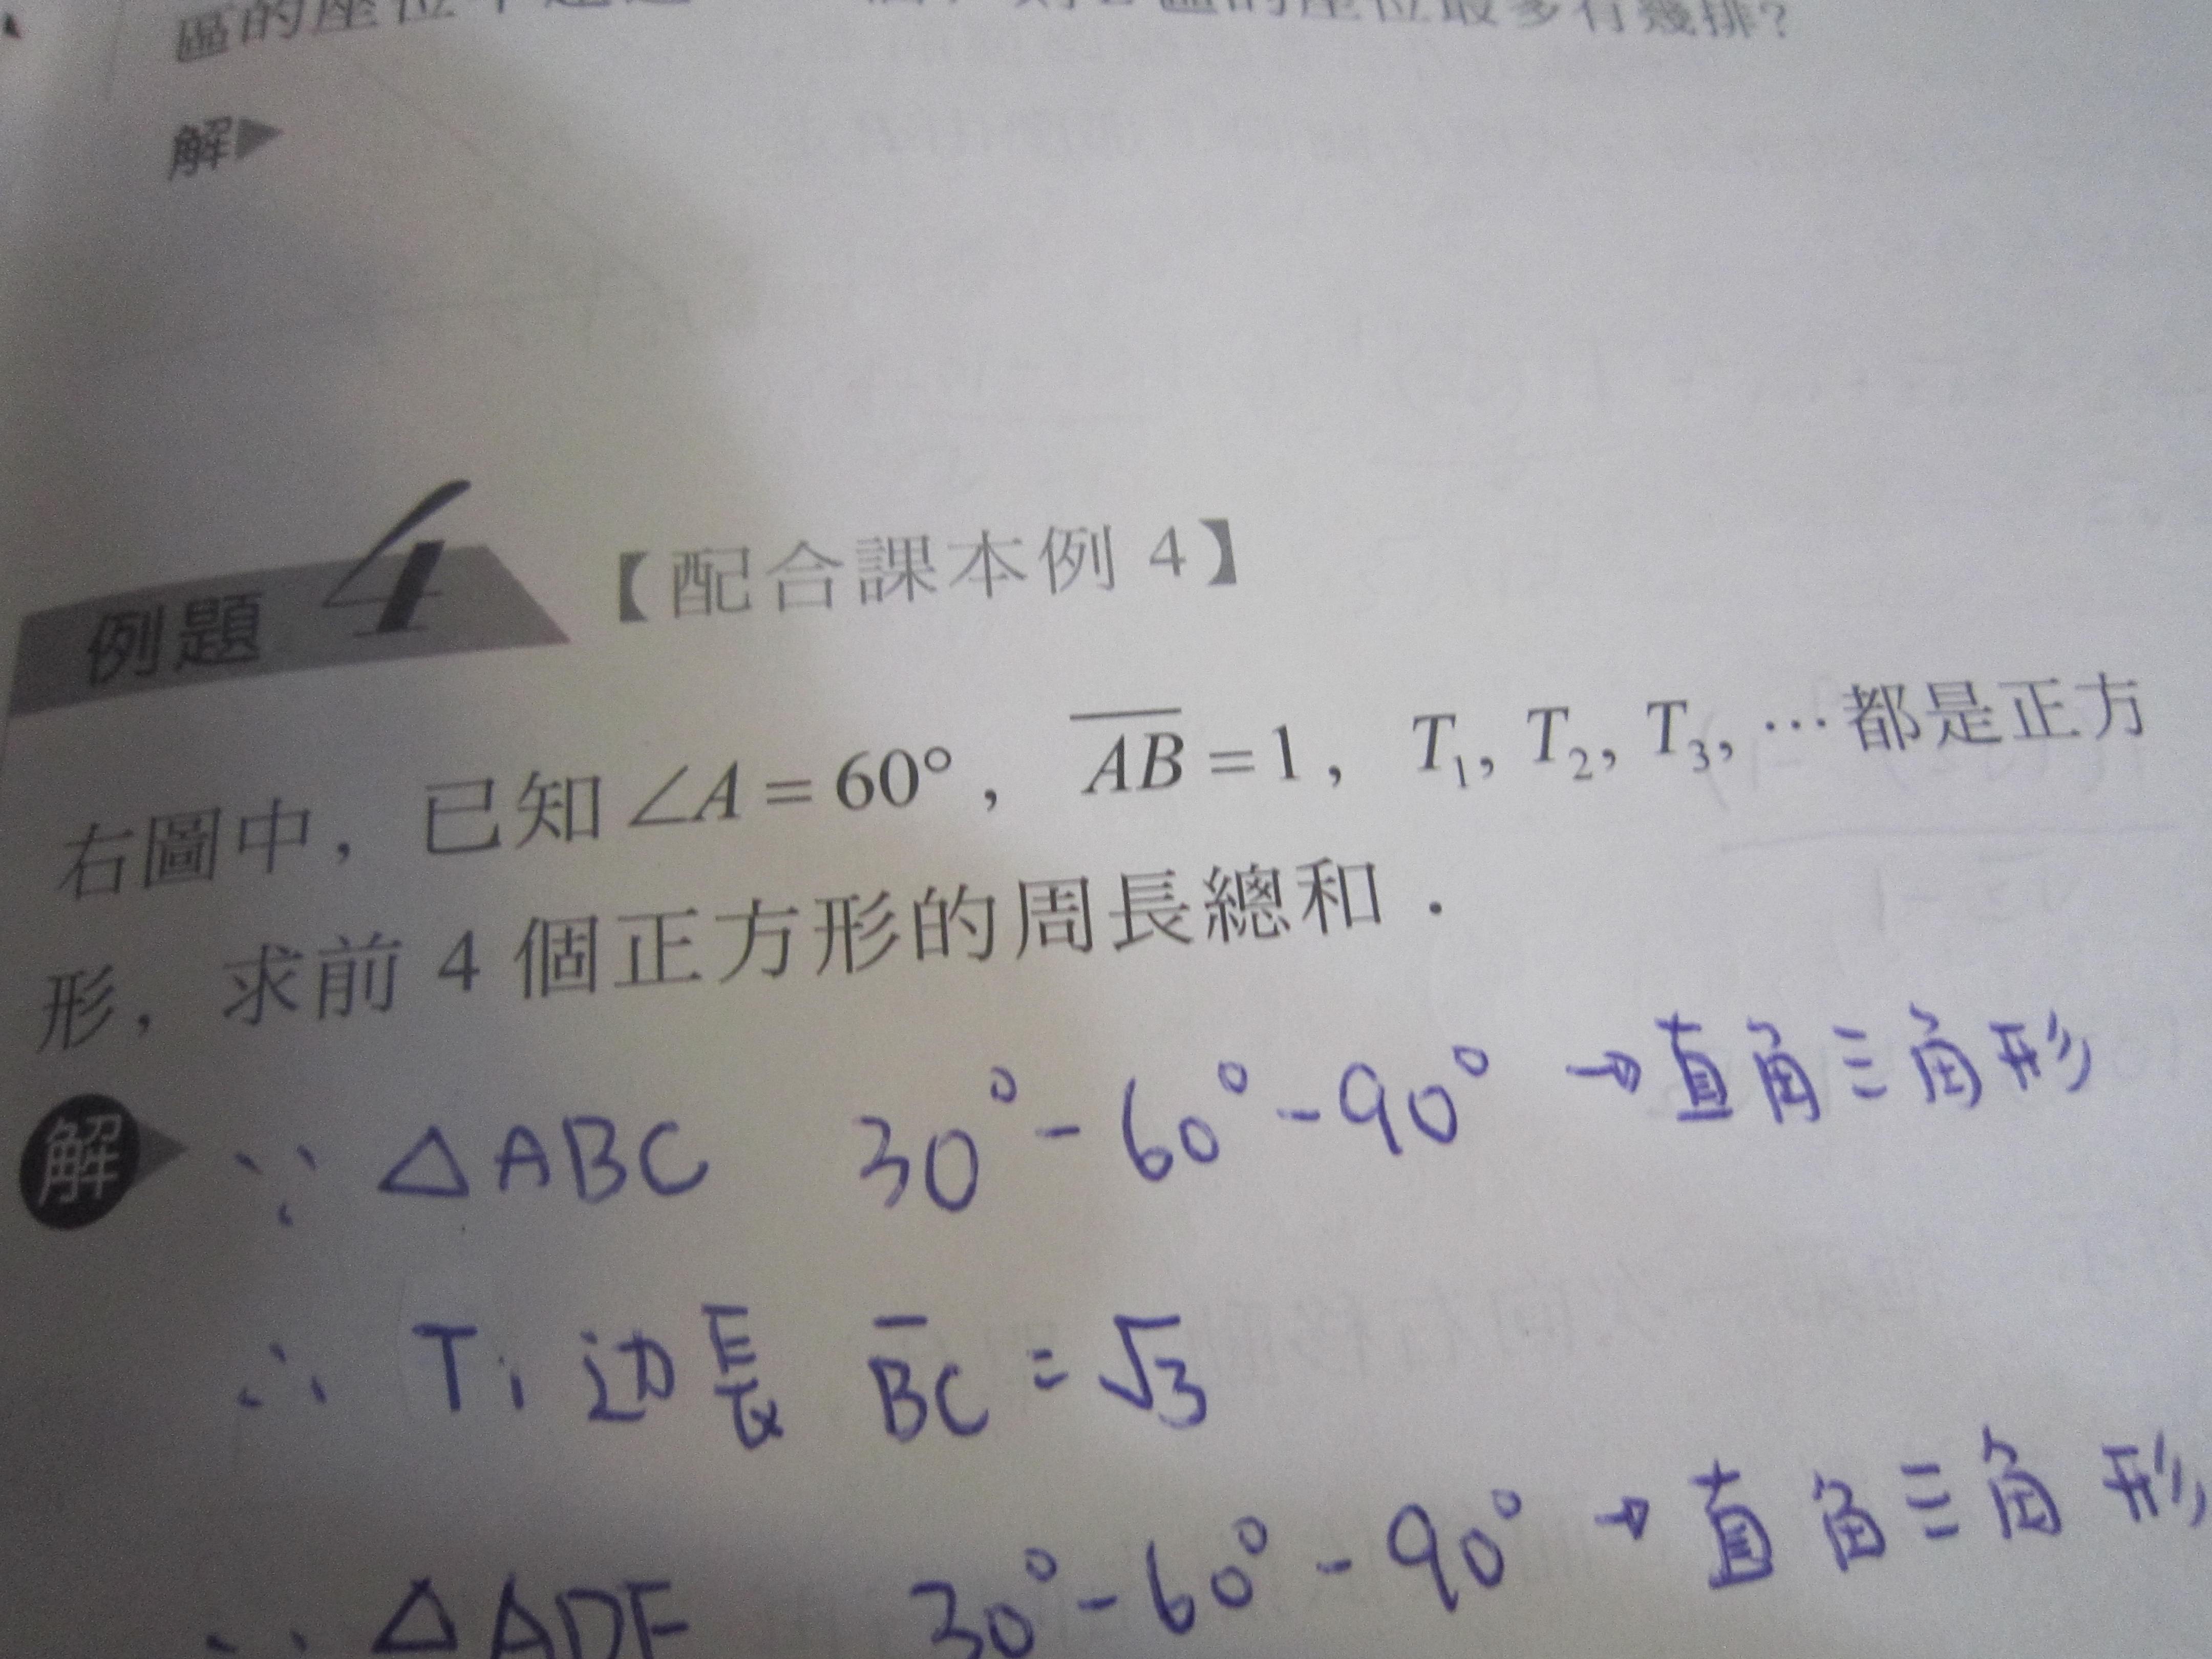 區的座位
區的座位最多有幾排?
解▶
例題4【配合課本例 4】
右圖中，已知∠A = 60°， AB = 1， T1, T2, T3, …都是正方
形，求前 4 個正方形的周長總和．
解 ∵ △ABC 30°-60°-90° → 直角三角形
∴ T1 边長 BC = √3
∵ △ADE 30°-60°-90° → 直角三角形